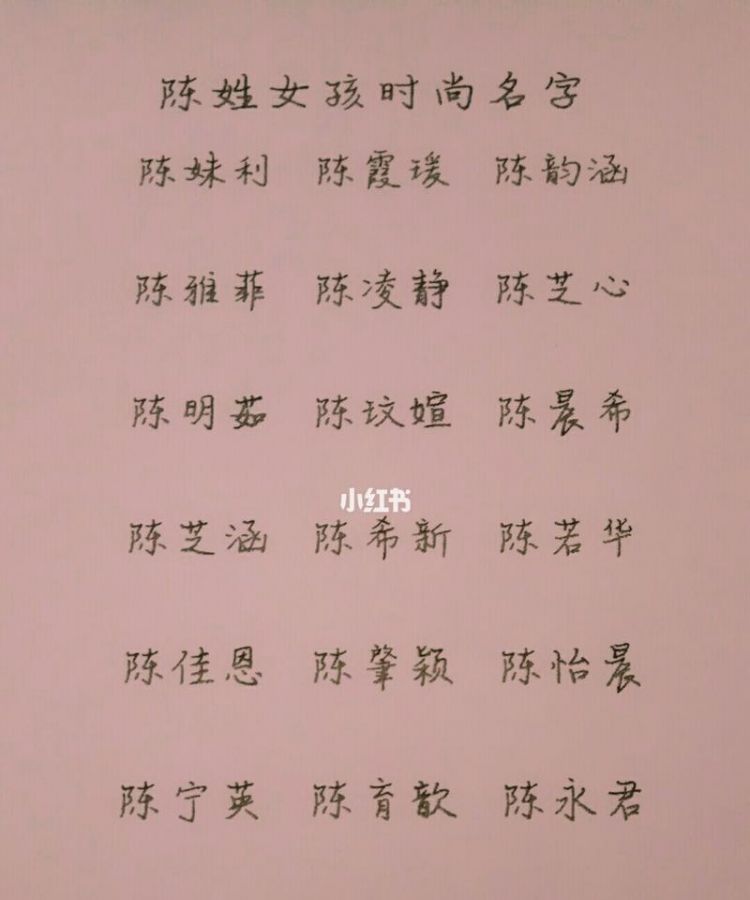 陈姓女孩时尚名字
陈妹利 陈霞瑗 陈韵涵
陈雅菲 陈凌静 陈芝心
陈明茹 陈玟媗 陈晨希
小红书
陈芝涵 陈希新 陈若华
陈佳恩 陈肇颖 陈怡晨
陈宁英 陈育歆 陈永君